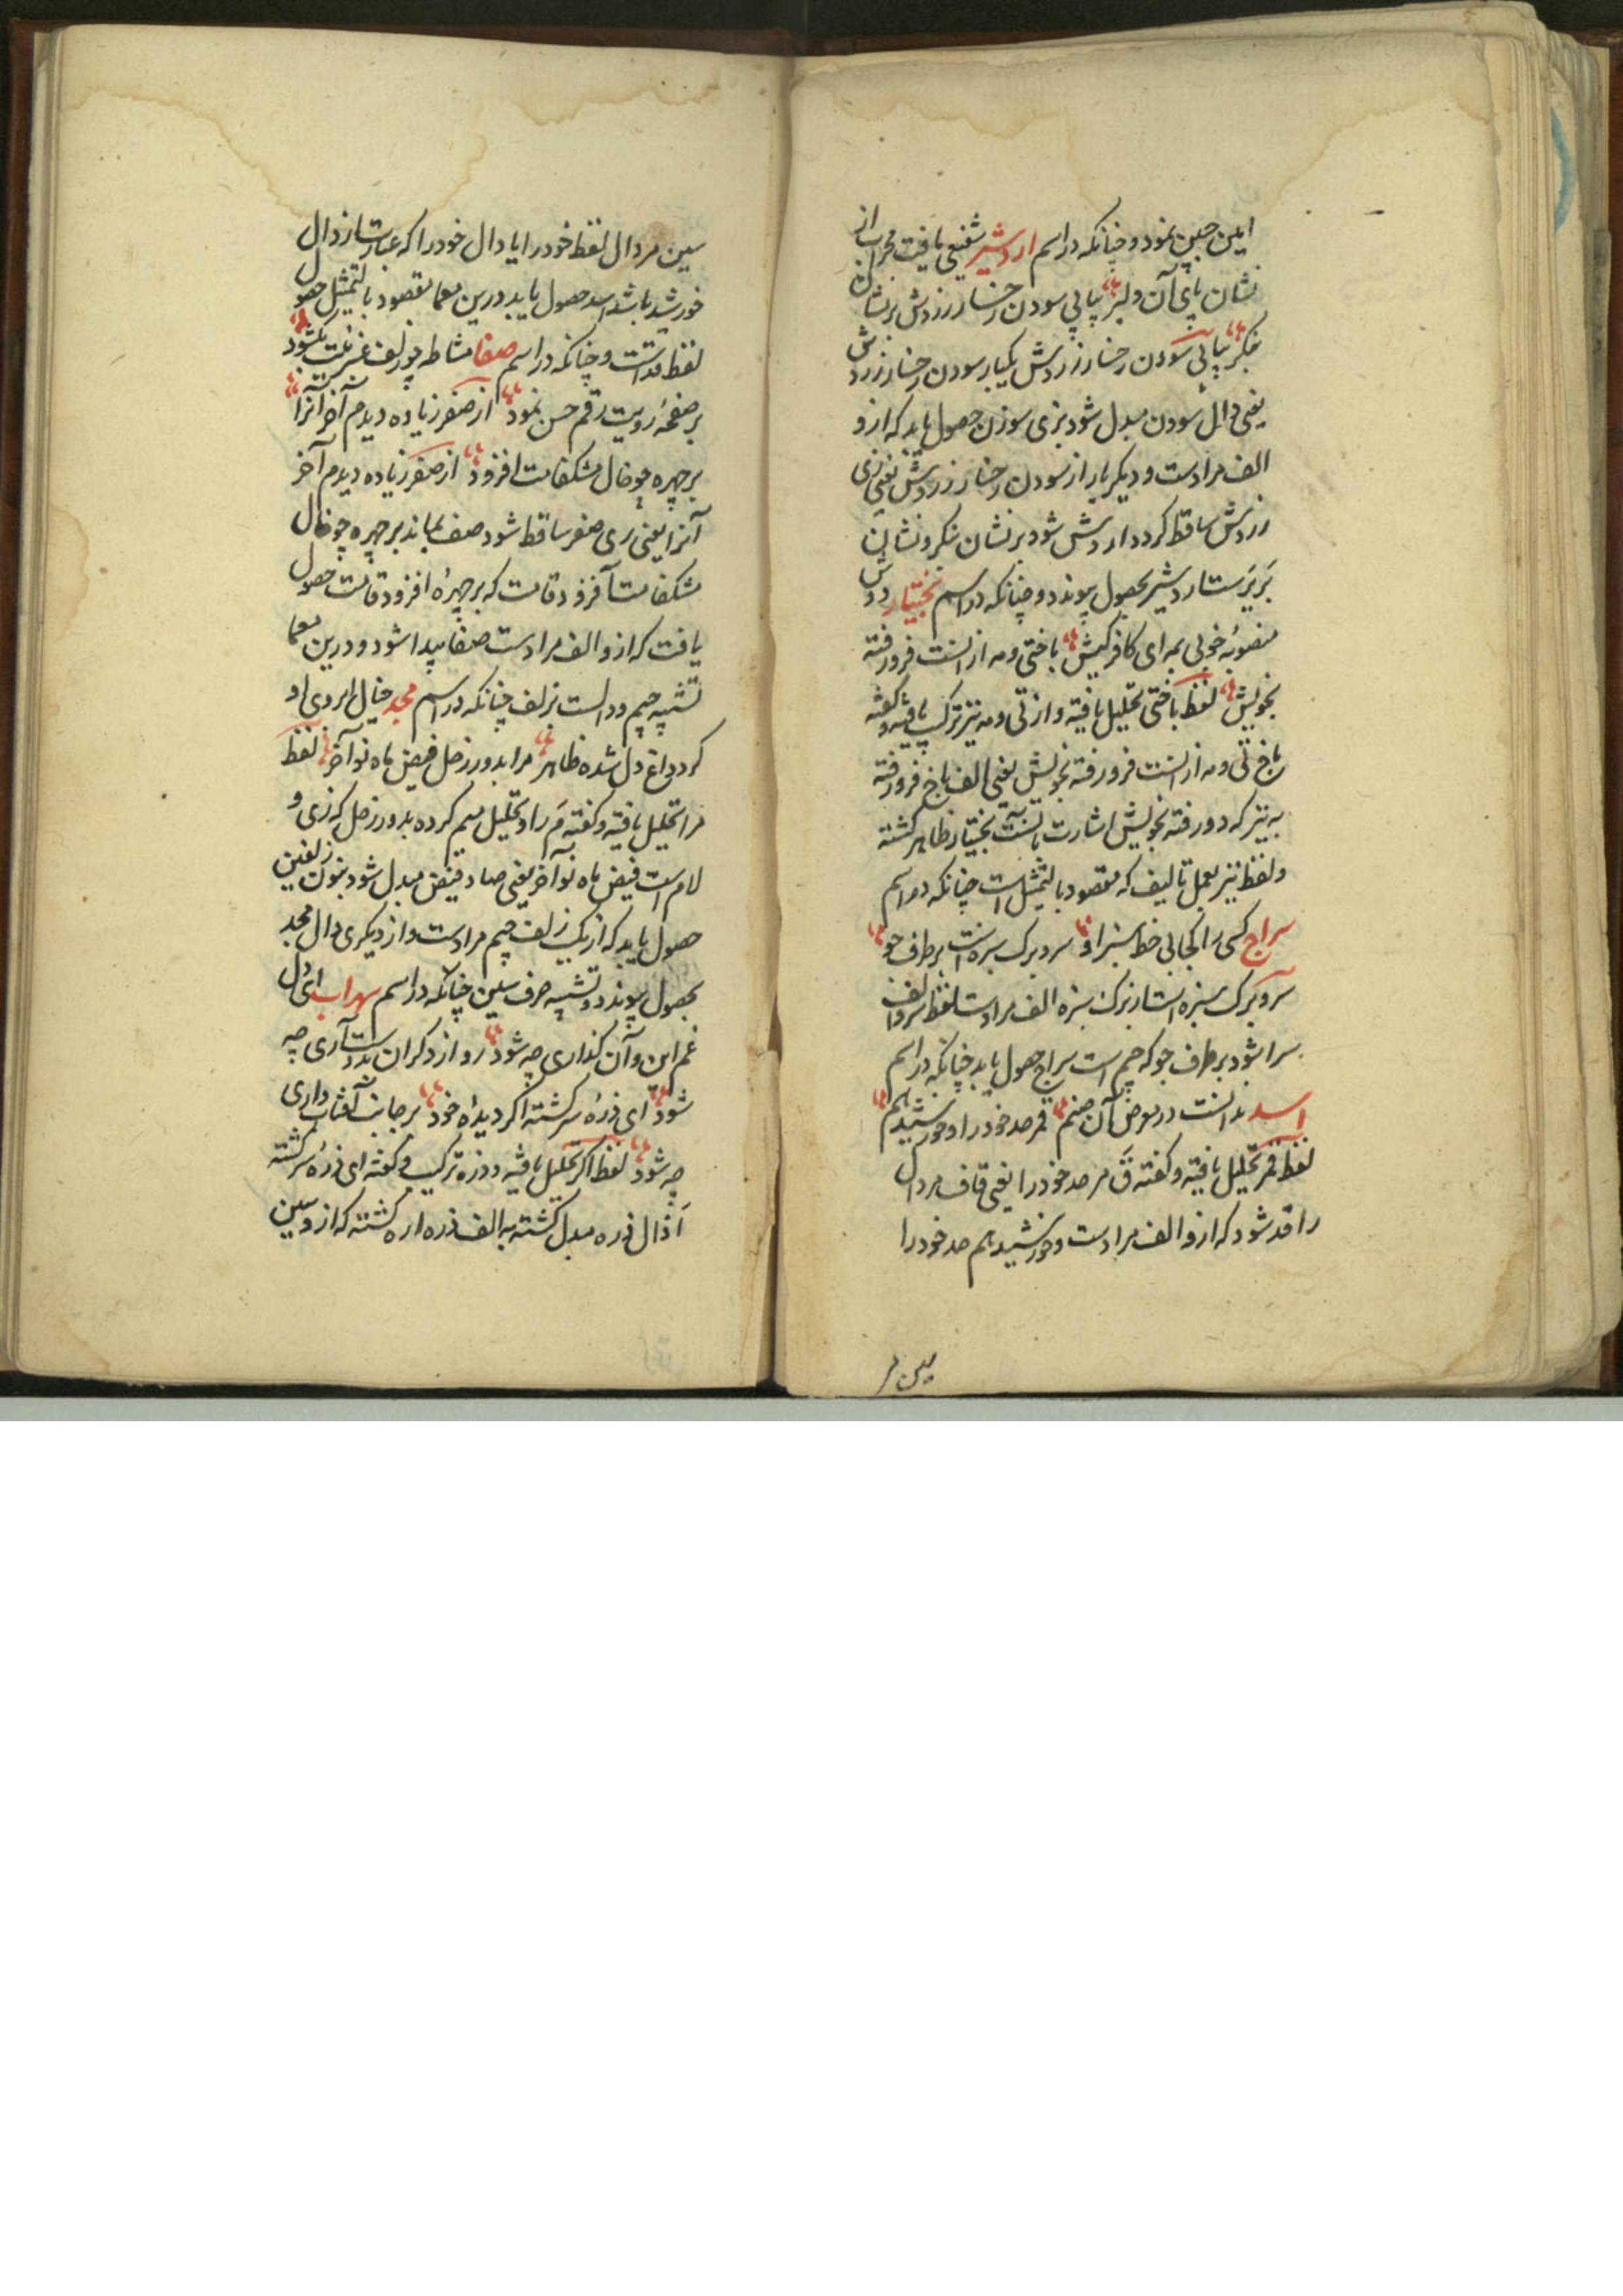 این چنین نمود و چنانکه در اسم اردشیر شفیعی یافت محراب از
نشان پای آن دلبر پیاپی سودن رخسار زردش بر نشان
بنگر پیاپی سودن رخسار زردش یکبار سودن رخسار زردش
یعنی دال سودن مبدل شود بزی سوزن حصول یابد که ازو
الف مرادست و دیگر بار از سودن رخسار زردش یعنی زی
زردش ساقط گردد اردش شود بر نشان بنگر و نشان
بربرست اردشیر بحصول پیوندد و چنانکه در اسم بختیار
منصوبه خوبی بمه ای کافر کیش باختی و مه از انست فرو رفته
بخویش لفظ باختی تحلیل یافته و از تی و مه نیز ترکیب یافته و گفته
باخ تی و مه از انست فرو رفته بخویش یعنی الف باخ فرو رفته
به نیز که دو رفته بخویش اشارت بآنست بختیار ظاهر گشته
و لفظ نیز بعمل تالیف که مقصود بالتمثیل است چنانکه در اسم
سراج کسی را کجا بی خط سبز او سرو برگ سبزه است بر طرف جو
سر و برگ سبزه است از برگ سبزه الف مرادست لفظ سر و الف
سرا شود بر طرف جو که جیم است سراج حصول یابد چنانکه در اسم
اسد بدانست در معرض آن صنم قمر حد خود را و خورشید هم
لفظ قمر تحلیل یافته و گفته ق مر حد خود را یعنی قاف مر دال
را قد شود که ازو الف مرادست و خورشید هم حد خود را
سین مر
سین مر دال لفظ خود را یا دال خود را که عبارت از دال
خورشید باشد اسد حصول یابد و درین معما مقصود بالتمثیل حصول
لفظ قدست و چنانکه در اسم صفا مشاطه چو زلف عنبرینت بگشود
بر صفحه رویت رقم حسن نمود از صفر زیاده دیدم آخر آنرا
بر چهره چو خال مشکفامت افزود از صفر زیاده دیدم آخر
آنرا یعنی ری صفر ساقط شود صف بماند بر چهره چو خال
مشکفامت افزود قامت که بر چهره افزود قامت حصول
یافت که ازو الف مرادست صفا پیدا شود و درین معما
تشبیه جیم و دالست بزلف چنانکه در اسم مجد خیال ابروی او
کرد داغ دل شده ظاهر مرا بدور زحل فیض ماه نو آخر لفظ
مرا تحلیل یافته و گفته م را و تحلیل میم کرده بدور زحل که زی و
لام است فیض ماه نو آخر یعنی صاد فیض مبدل شود بنون زلفین
حصول یابد که از یک زلف جیم مرادست و از دیگری دال مجد
بحصول پیوندد و تشبیه حرف سین چنانکه در اسم سهراب ای دل
غم این و آن گذاری چه شود رو از دگران بدوست آری چه
شود ای ذره سرگشته اگر دیده خود بر جانب آفتاب داری
چه شود لفظ اگر تحلیل یافته و ذره ترکیب و گفته ای ذره سرگشته
ا ذال ذره مبدل گشته به الف ذره اره گشته که ازو سین